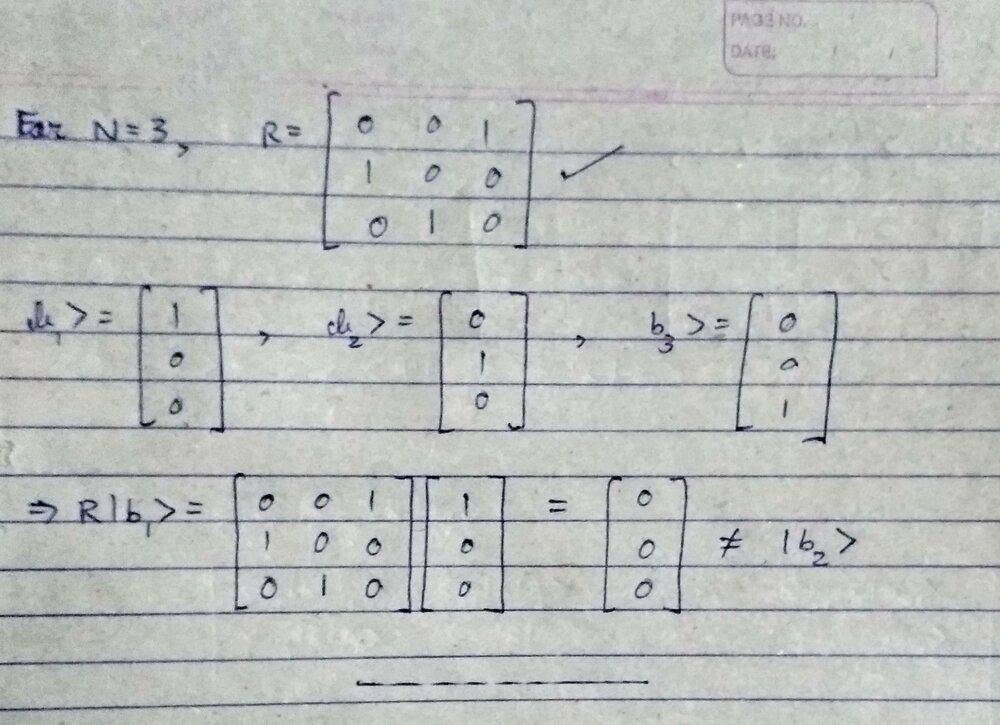 PAGE NO.
DATE: / /
For N = 3, R = [ 0 0 1 ; 1 0 0 ; 0 1 0 ] ✓
|b₁> = [ 1 ; 0 ; 0 ] , |b₂> = [ 0 ; 1 ; 0 ] , b₃> = [ 0 ; 0 ; 1 ]
⇒ R|b₁> = [ 0 0 1 ; 1 0 0 ; 0 1 0 ] [ 1 ; 0 ; 0 ] = [ 0 ; 0 ; 0 ] ≠ |b₂>